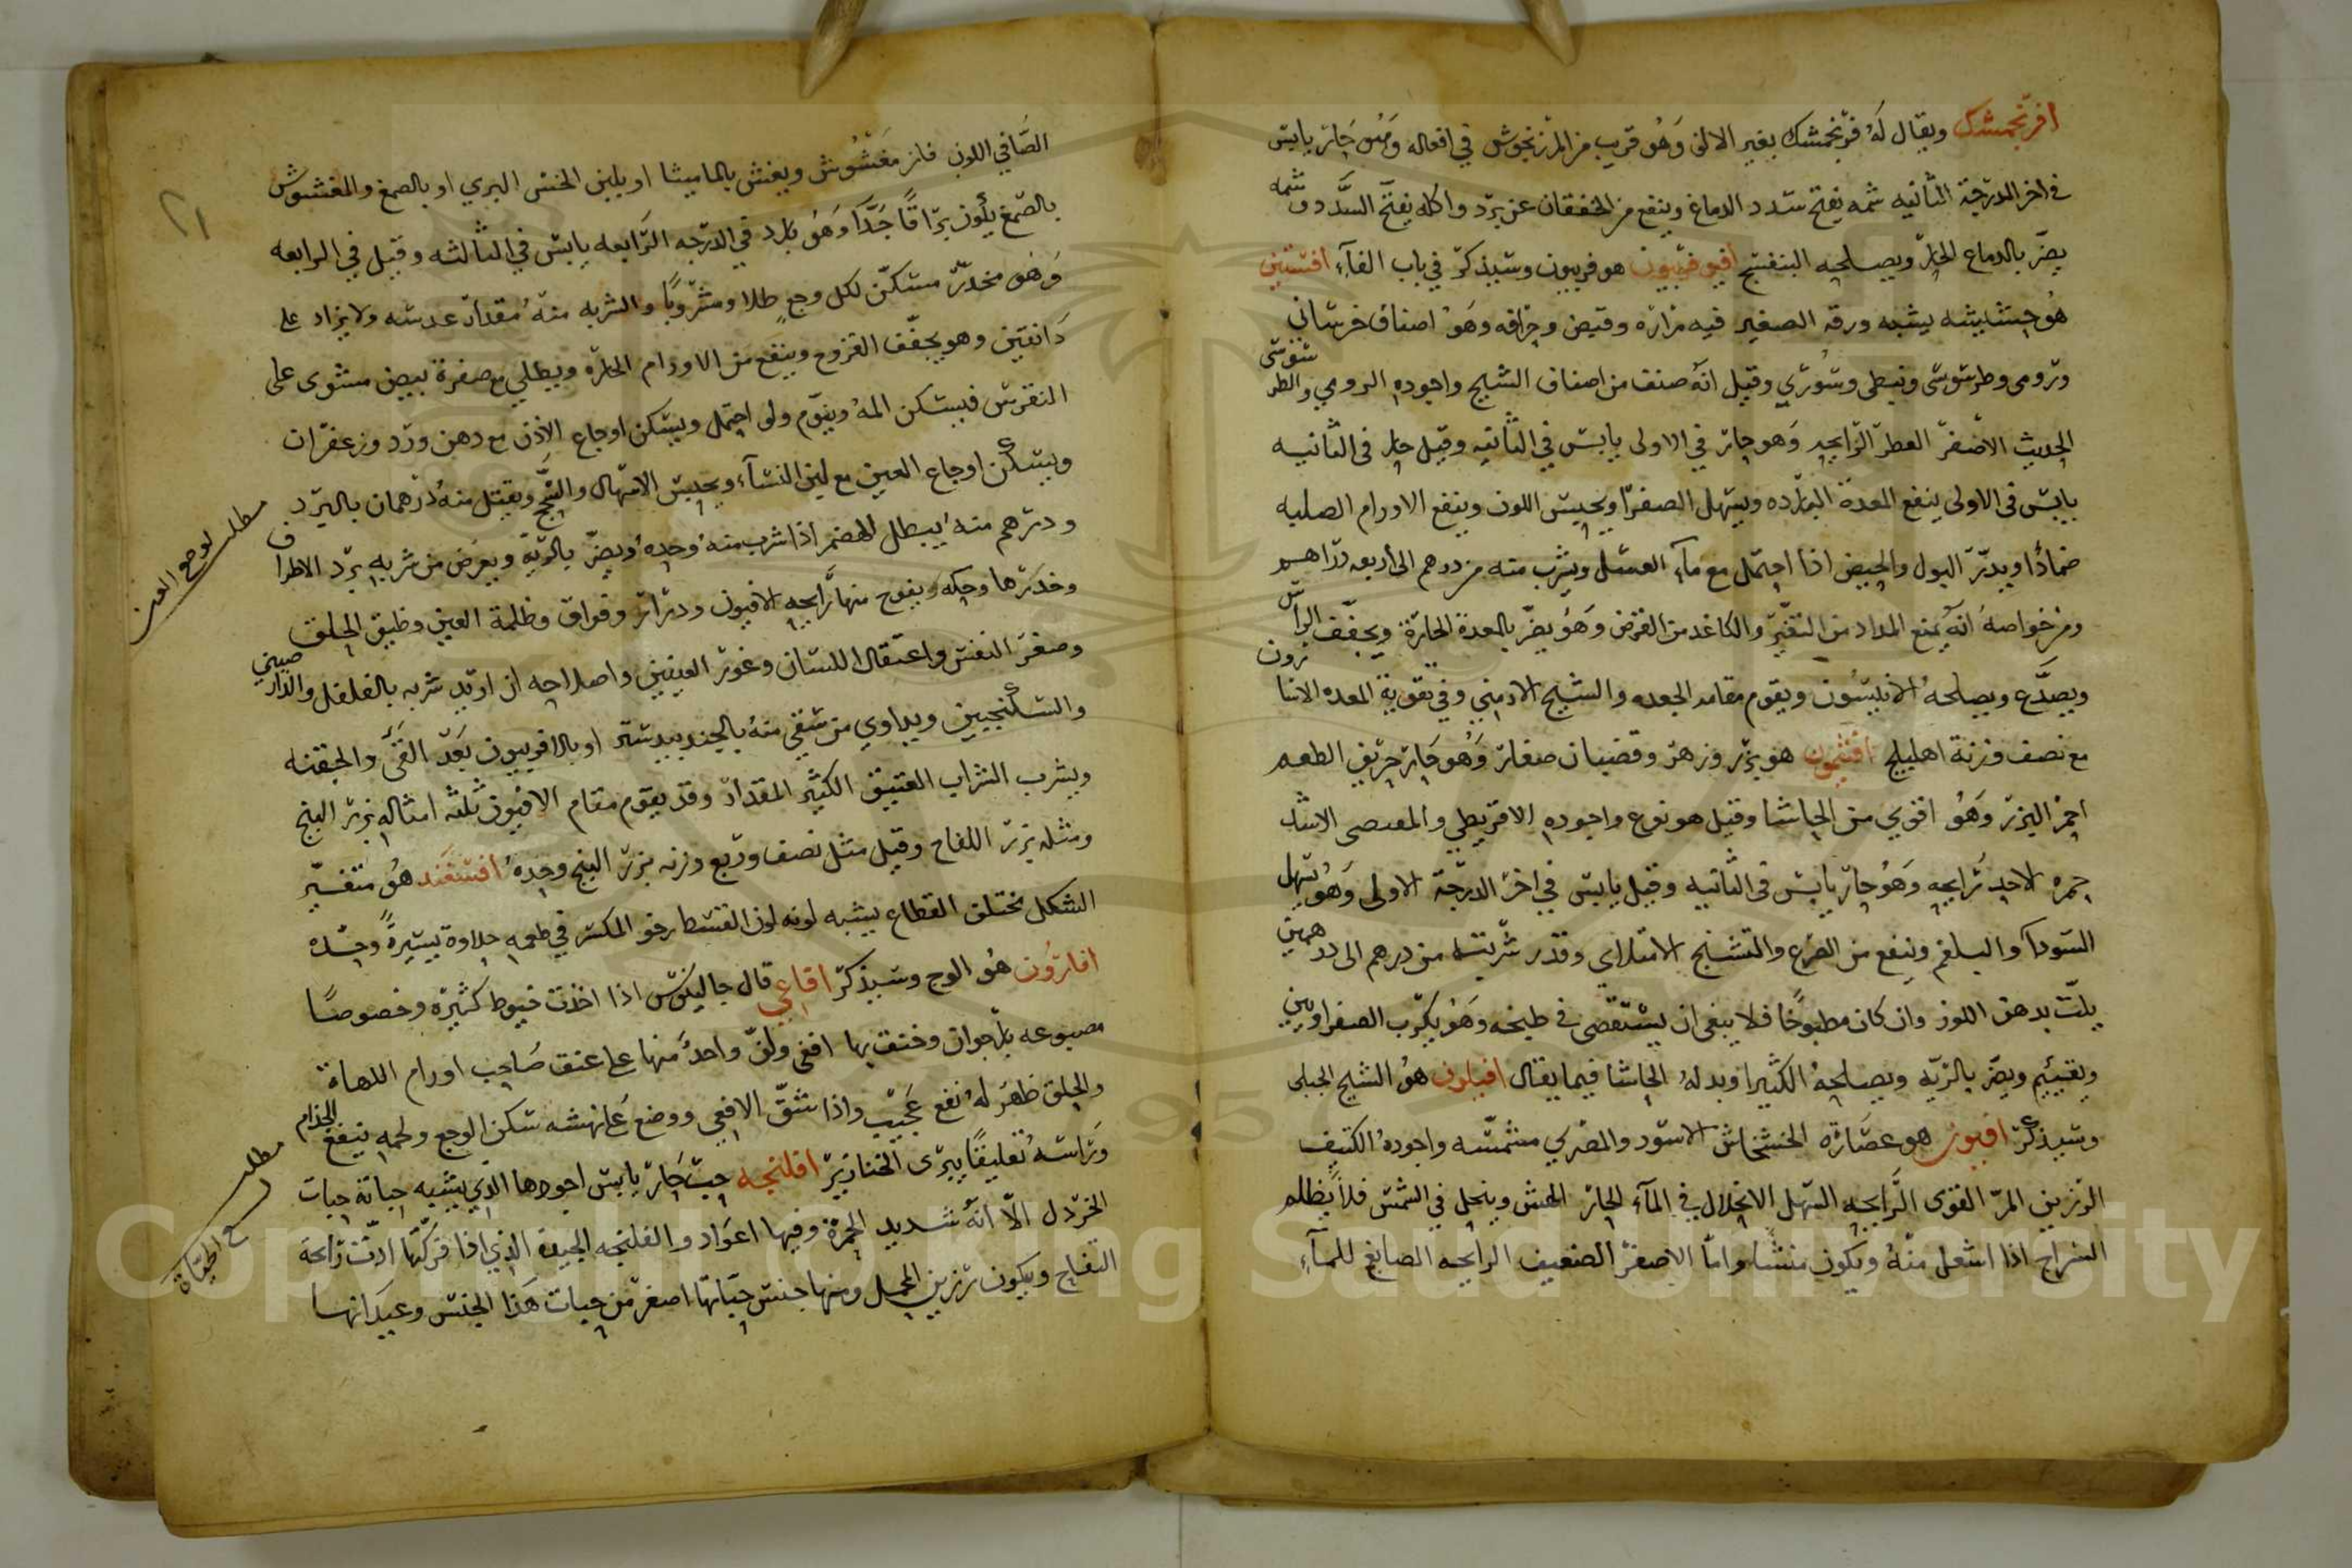 افرنجمشك ويقال له فرنجمشك بغير الالف وهو قريب من المرزنجوش في افعاله وهو حار يابس
في اخر الدرجة الثانيه شمه يفتح سدد الدماغ وينفع من الخفقان عن برد واكله يفتح السدد وشمه
يضر بالدماغ الحار ويصلحه البنفسج هو فربيون وسيذكر في باب الفاء افسنتين
هو حشيشه يشبه ورقه الصغير فيه مراره وقبض وحرافه وهو اصناف خرساني
ورومي وطرسوسي ونبطي وسوري وقيل انه صنف من اصناف الشيح واجوده الرومي والطرسوسي
الحديث الاصفر العطر الرايحه وهو حار في الاولى يابس في الثانيه وقيل حار في الثانيه
يابس في الاولى ينفع المعدة البارده ويسهل الصفرا ويحسن اللون وينفع الاورام الصلبه
ضمادًا ويدر البول والحيض اذا احتمل مع ماء العسل ويشرب منه من درهم الى اربعه دراهم
ومن خواصه انه يمنع المداد من التغير والكاغد من القرض وهو يضر بالمعدة الحارة ويجفف الراس
ويصدع ويصلحه الانيسون ويقوم مقامه الجعده والشيح الارمني وفي تقوية المعده الاسارون
مع نصف وزنة اهليلج افتيمون هو بزر وزهر وقضبان صغار وهو حار حريف الطعم
احمر البزر وهو اقوى من الحاشا وقيل هو نوع واجوده الاقريطي والمقدسي الاشد
حمره الاحد رايحه وهو حار يابس في الثانيه وقيل يابس في اخر الدرجة الاولى وهو يسهل
السودا والبلغم وينفع من الصرع والتشنج الامتلاي وقدر شربته من درهم الى درهمين
يلت بدهن اللوز وان كان مطبوخًا فلا ينبغي ان يستقصى في طبخه وهو يكرب الصفراويين
ويقييهم ويضر بالريه ويصلحه الكثيرا وبدله الحاشا فيما يقال افيلون هو الشيح الجبلي
وسيذكر افيون هو عصارة الخشخاش الاسود والمصري مشمسه واجوده الكثيف
الرزين المر القوى الرايحه السهل الانحلال في الماء الحار الهش وينحل في الشمس فلا يظلم
السراج اذا اشعل منه واما الاصفر الضعيف الرايحه الصابغ للماء
الصافي اللون فانه مغشوش ويغش بالماميثا او بلبن الخس البري او بالصمغ والمغشوش
بالصمغ يكون براقًا جدًا وهو بارد في الدرجه الرابعه يابس في الثالثه وقيل في الرابعه
وهو مخدر مسكن لكل وجع طلا ومشروبًا والشربه منه مقدار عدسه ولا يزاد على
دانقين وهو يجفف القروح وينفع من الاورام الحاره ويطلى مع صفرة بيض مشوى على
النقرس فيسكن المه وينوم ولو احتمل ويسكن اوجاع الاذن مع دهن ورد وزعفران
ويسكن اوجاع العين مع لبن النساء ويحبس الاسهال والسحج ويقتل منه درهمان بالبرد
ودرهم منه يبطل الهضم اذا شرب منه وحده ويضر بالريه ويعرض من شربه برد الاطراف
وخدرها وحكه ويفوح منها رايحه الافيون ودوار وفواق وظلمة العين وضيق الحلق
وصغر النفس واعتقال اللسان وغور العينين واصلاحه ان اريد شربه بالفلفل والدارصيني
والسكنجبين ويداوي من سقي منه بالجندبيدستر او بالافربيون بعد القئ والحقنه
ويشرب الشراب العتيق الكثير المقدار وقد يقوم مقام الافيون ثلثه امثاله بزر البنج
ومثله بزر اللفاح وقيل مثل نصف وربع وزنه بزر البنج وحده افسنفند هو متغير
الشكل مختلف القطاع يشبه لونه لون القسط رخو المكسر في طعمه حلاوة يسيرة وحده
افارون هو الوج وسيذكر افاعي قال جالينوس اذا اخذت خيوط كثيره وخصوصًا
مصبوغه بارجوان وخنقت بها افعى ولف واحد منها على عنق صاحب اورام اللهاة
والحلق ظهر له نفع عجيب واذا شق الافعى ووضع على نهشه سكن الوجع ولحمه ينفع الجذام
وراسه تعليقًا يبرى الخنازير افلنجه حب حار يابس اجودها الذي يشبه حباته حبات
الخردل الا انه شديد الحمرة وفيها اعواد والفلنجه الجيدة الذي اذا فركتها ادت رايحة
التفاح ويكون رزين المحمل ومنها جنس حباتها اصغر من حبات هذا الجنس وعيدانها
مطلب لوجع العين
مطلب
٢١
Copyright © King Saud University
1957